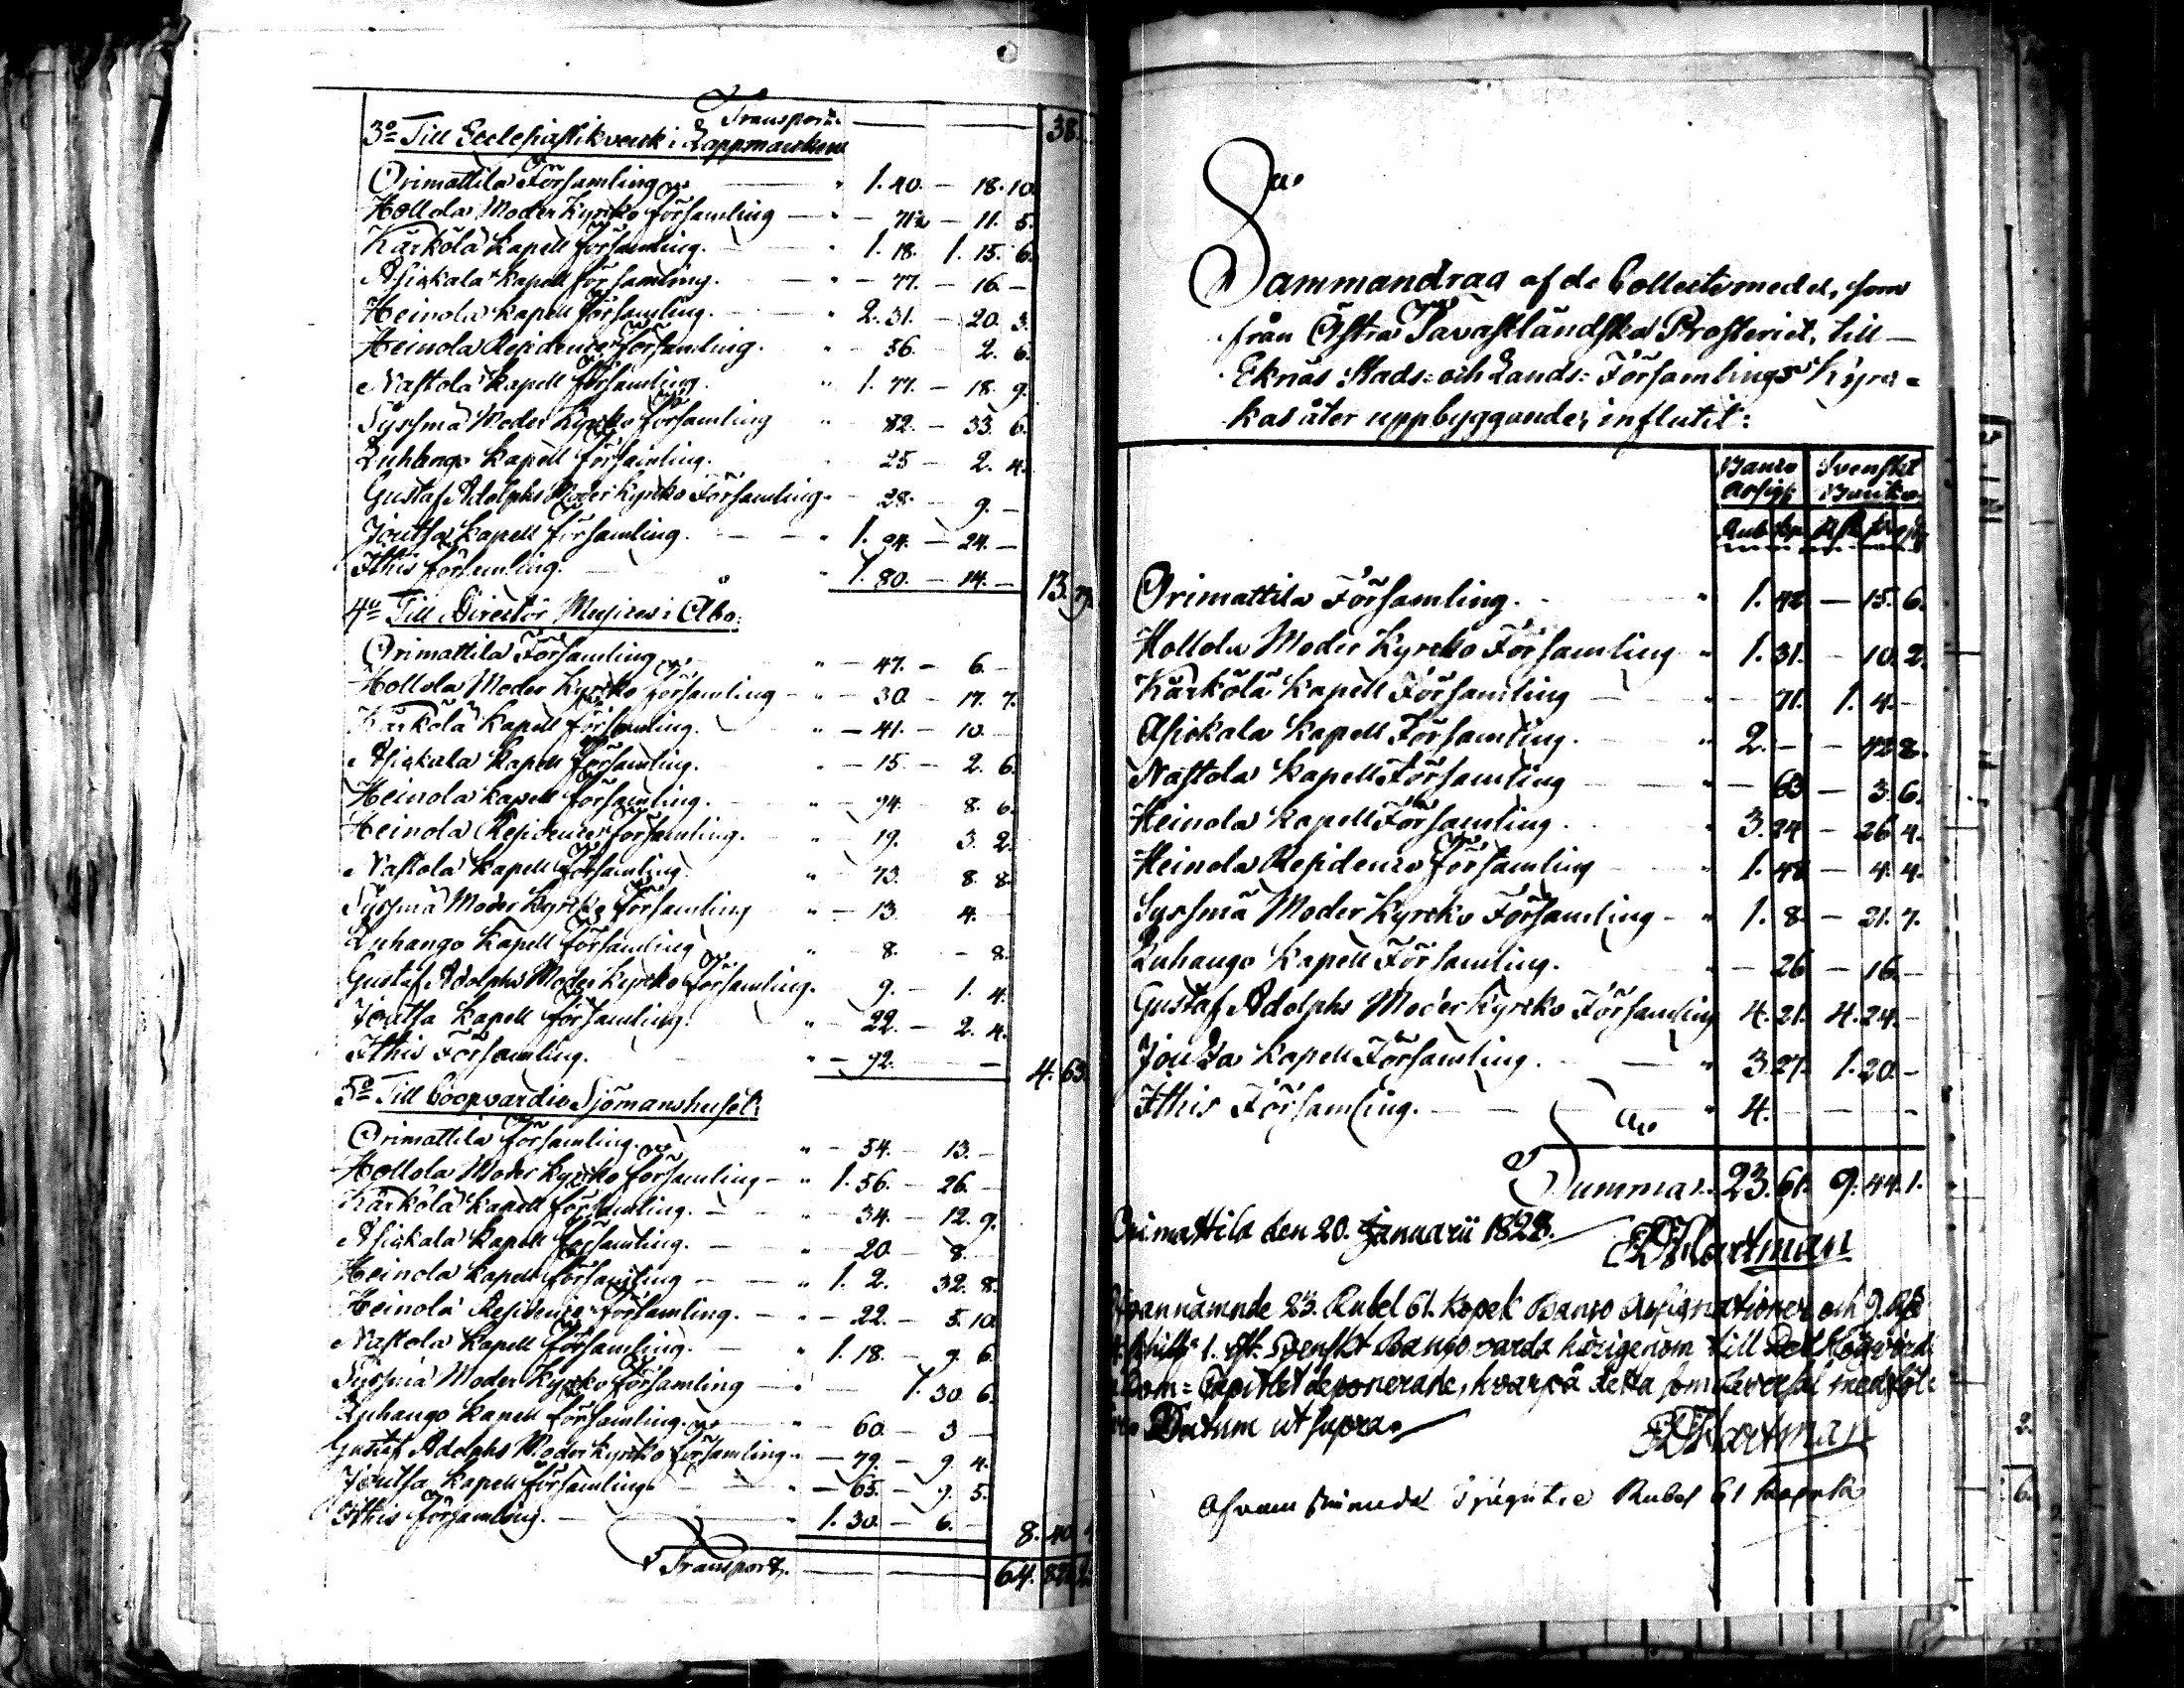 Transport. — 38.
3o Till Ecclesiastikverk i Lappmarken
Orimattila Församling — " 1. 40. — 18. 10.
Hollola Moder Kyrko församling — " — 71 1/2 — 11. 5.
Kärkölä Kapell församling. " 1. 18. 1. 15. 6.
Asikkala Kapell församling. " — 77. — 16. —
Heinola Kapell församling. " 2. 31. — 20. 3.
Heinola Residence församling. " — 56. — 2. 6.
Nastola Kapell församling. " 1. 77. — 18. 9.
Sysmä Moder Kyrko församling " — 82. — 33. 6.
Luhango Kapell församling. 25 — 2. 4.
Gustaf Adolphs Moder Kyrko Församling. — 28. — 9. —
Joutsa Kapell församling. — " 1. 94. — 24. —
Ithis församling. " 1. 80. — 14. — 13. 79.
4o Till Director Musices i Åbo.
Orimattila Församling " — 47. — 6. —
Hollola Moder Kyrko församling — " — 30. — 17. 7.
Kärkölä Kapell församling. " — 41. — 10. —
Asikkala Kapell församling. " — 15. — 2. 6.
Heinola Kapell församling. " — 94. — 8. 6.
Heinola Residence församling. " 19. 3. 2.
Nastola Kapell församling. " — 73. 8. 8.
Sysmä Moder Kyrko församling " — 13. 4. —
Luhango Kapell församling " 8. — 8.
Gustaf Adolphs Moder Kyrko församling. 9. — 1. 4.
Joutsa Kapell församling. " — 22. — 2. 4.
Ithis Församling. " — 92. — 4. 63.
5o Till Coopvardie Sjömanshuset:
Orimattila församling. " — 54. — 13. —
Hollola Moder Kyrko församling — " 1. 56. — 26. —
Kärkölä Kapell församling. — " 34. — 12. 9.
Asikkala Kapell församling. — " — 20. — 8. —
Heinola Kapell församling — " 1. 2. 32. 8.
Heinola Residence församling. — " — 22. — 5. 10.
Nastola Kapell församling. — " 1. 18. — 9. 6.
Sysmä Moder Kyrko församling — " — 1. 30. 6.
Luhango Kapell församling. " 60. — 3 —
Gustaf Adolphs Moder Kyrko församling. " — 79. — 9. 4.
Joutsa Kapell församling. " — 65. — 9. 5.
Ithis församling. — " 1. 30. — 6. — 8. 40
Transport. — 64. 82
Sammandrag af de Collectemedel, som
från Östra Tavastländska Prosteriet, till
Eknäs Stads= och Lands= Församlings Kyr=
kas åter uppbyggande, influtit:
Banco Assign. Svenskt Banko.
Rub. Kop. Rdr. sk. rst.
Orimattila Församling. " 1. 42. — 15. 6.
Hollola Moder Kyrko Församling " 1. 31. — 10. 2.
Kärkölä Kapell Församling " — 71. 1. 4. —
Asikkala Kapell Församling. " 2. — — 42. 8.
Nastola Kapell Församling " — 63 — 3. 6.
Heinola Kapell Församling. " 3. 24 — 26. 4.
Heinola Residence Församling " 1. 48 — 4. 4.
Sysmä Moder Kyrko Församling — " 1. 8. — 21. 7.
Luhango Kapell Församling. " — 26 — 16. —
Gustaf Adolphs Moder Kyrko Församling 4. 21. 4. 24. —
Joutsa Kapell Församling. — " 3. 27. 1. 20. —
Ithis Församling. — " 4. — — —
Summa. 23. 61. 9. 44. 1.
Orimattila den 20. Januarii 1823. Hartman
Ofvannämnde 23. Rubel 61. Kopek Banco Assignationer och 9. Rdr
1. rst. Svenskt Banco varda härigenom till Det Högvörd.
Dom= Capitlet deponerade, hvarpå detta som Reversal medföl=
Datum ut supra. Hartman
Ofvan nämnde Tjugutre Rubel 61 Kopek